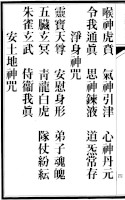 喉神虎賁　氣神引津　心神丹元
令我通眞　思神鍊液　道炁常存
淨身神咒
靈寶天尊　安慰身形　弟子魂魄
五臟玄冥　青龍白虎　隊仗紛紜
朱雀玄武　侍衞我眞
安土地神咒